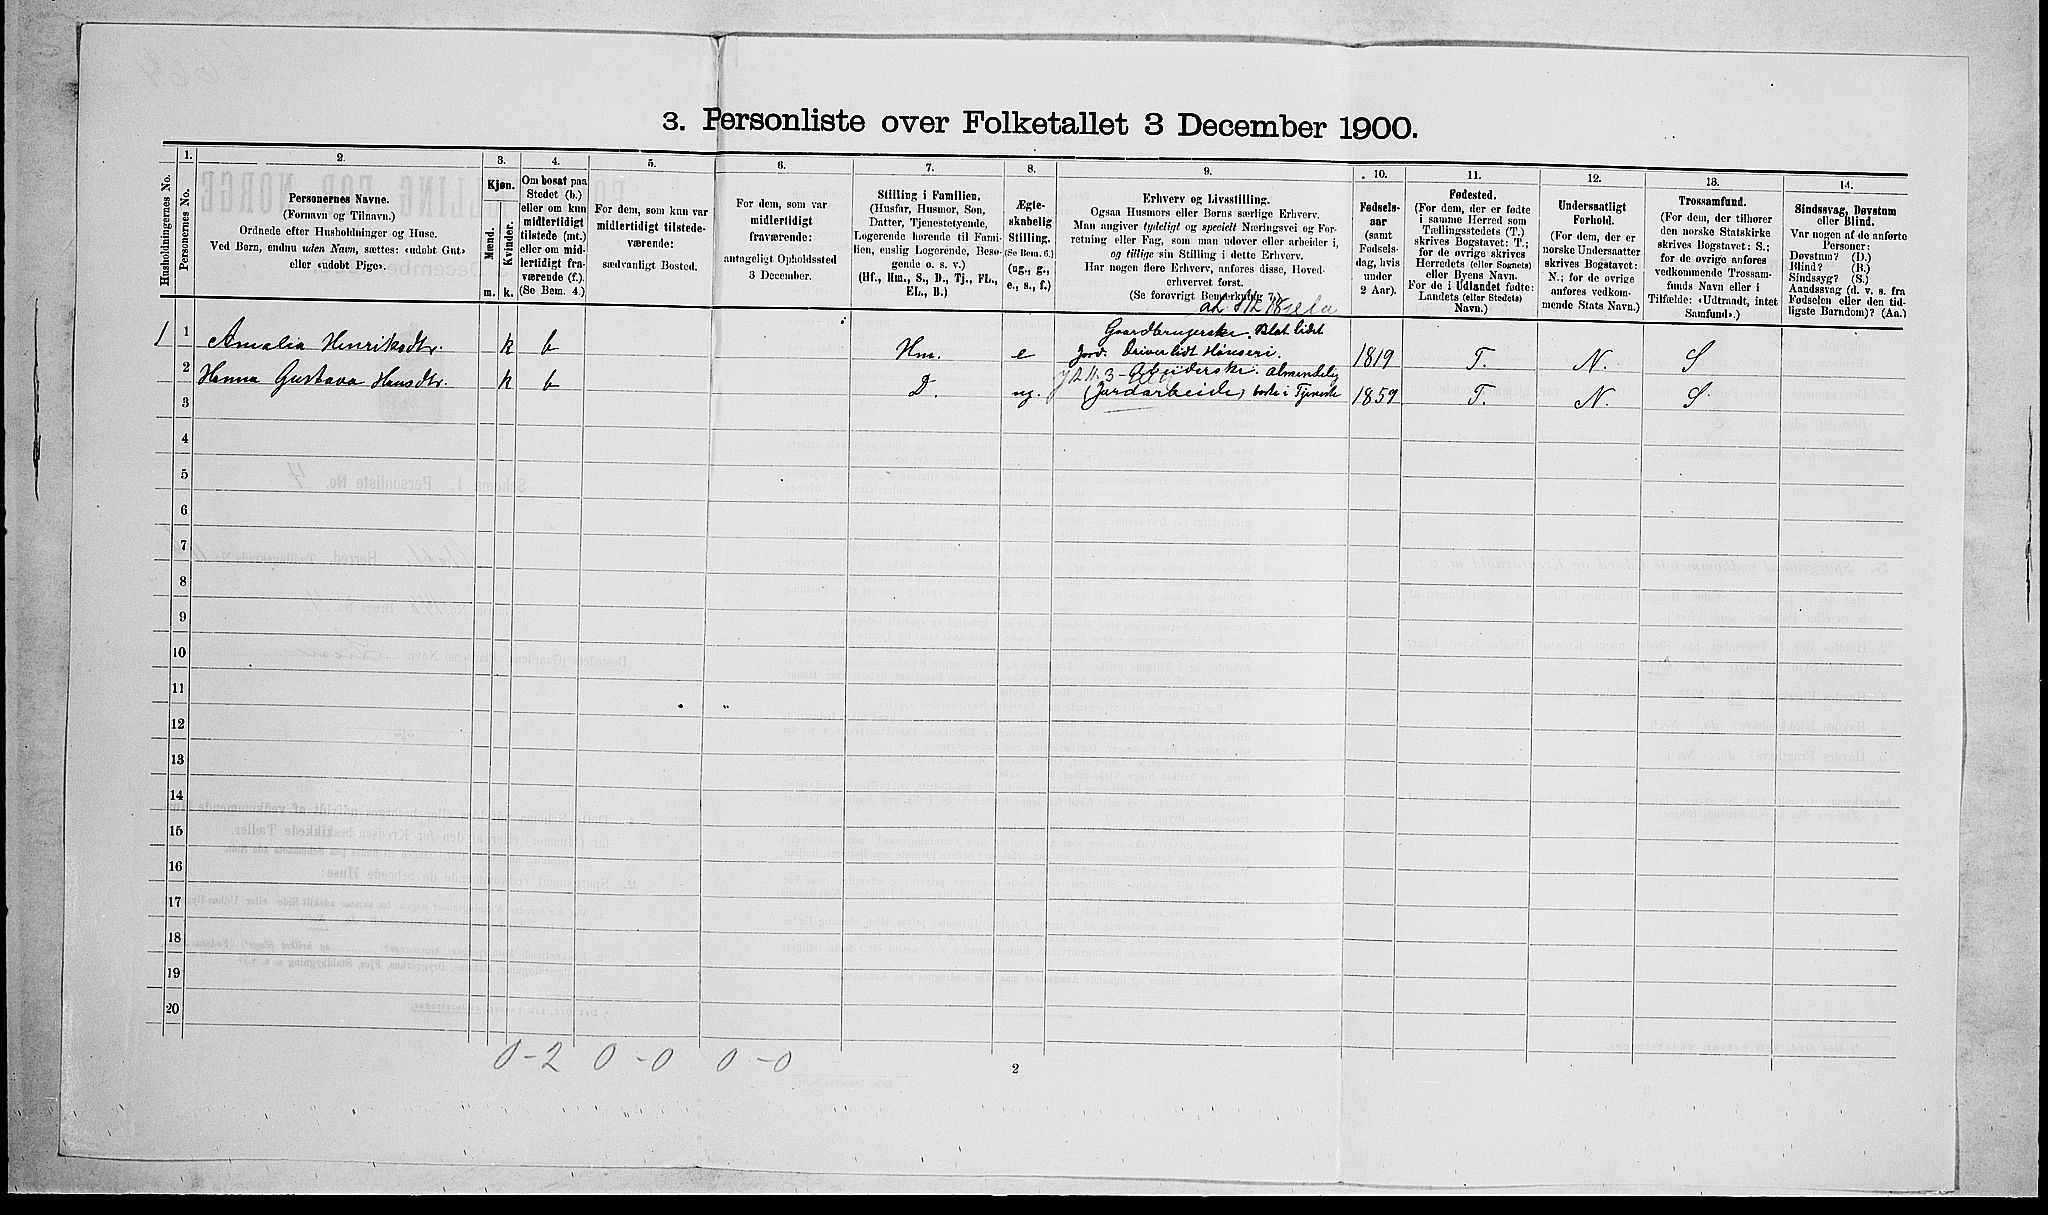 3. Personliste over Folketallet 3 December 1900.
Husholdningernes No.
1.
Personernes No.
2.
Personernes Navne.
(Fornavn og Tilnavn.)
Ordnede efter Husholdninger og Huse.
Ved Børn, endnu uden Navn, sættes: «udøbt Gut»
eller «udøbt Pige».
3.
Kjøn.
Mænd.
Kvinder.
m.
k.
4.
Om bosat paa
Stedet (b.)
eller om kun
midlertidigt
tilstede (mt.)
eller om mid-
lertidigt fra-
værende (f.).
(Se Bem. 4.)
5.
For dem, som kun var
midlertidigt tilstede-
værende:
sædvanligt Bosted.
6.
For dem, som var
midlertidigt
fraværende:
antageligt Opholdssted
3 December.
7.
Stilling i Familien.
(Husfar, Husmor, Søn,
Datter, Tjenestetyende,
Logerende hørende til Fami-
lien, enslig Logerende, Besø-
gende o. s. v.)
(Hf., Hm., S., D., Tj., FL.,
EL., B.)
8.
Ægte-
skabelig
Stilling.
(Se Bem. 6.)
(ug., g.,
e., s., f.)
9.
Erhverv og Livsstilling.
Ogsaa Husmors eller Børns særlige Erhverv.
Man angiver tydeligt og specielt Næringsvei og For-
retning eller Fag, som man udover eller arbeider i,
og tillige sin Stilling i dette Erhverv.
Har nogen flere Erhverv, anføres disse, Hoved-
erhvervet først.
(Se forøvrigt Bemerkning 7.)
10.
Fødsels-
aar
(samt
Fødsels-
dag, hvis
under
2 Aar).
11.
Fødested.
(For dem, der er fødte
i samme Herred som
Tællingsstedets (T.)
skrives Bogstavet: T.;
for de øvrige skrives
Herredets (eller Sognets)
eller Byens Navn.
For de i Udlandet fødte:
Landets (eller Stedets)
Navn.)
12.
Undersaatligt
Forhold.
(For dem, der er
norske Undersaatter
skrives Bogstavet:
N.; for de øvrige
anføres vedkom-
mende Stats Navn.)
13.
Trossamfund.
(For dem, der tilhører
den norske Statskirke
skrives Bogstavet: S.;
for de øvrige anføres
vedkommende Trossam-
funds Navn eller i
Tilfælde: «Udtraadt, intet
Samfund».)
14.
Sindssvag, Døvstum
eller Blind.
Var nogen af de anførte
Personer:
Døvstum? (D.)
Blind? (B.)
Sindssyg? (S.)
Aandssvag (d. v. s. fra
Fødselen eller den tid-
ligste Barndom)? (Aa.)
1 1 Amalia Henriksdtr. k b Hm. e Gaardbrugerske. lidet Jord. Driver lidt Hønseri. 1819 T. N. S
2 Hanna Gustava Hansdtr. k b D. ug. almindelig (Jordarbeide) i Tjeneste 1859 T. N. S.
3
4
5
6
7
8
9
10
11
12
13
14
15
16
17
18
19
20
0-2 0-0 0-0
2